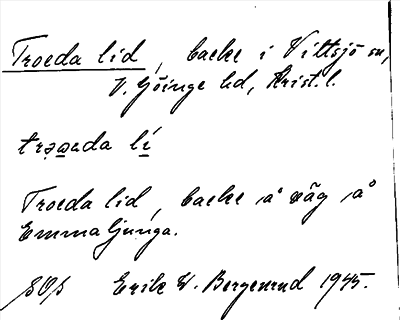 Troeda lid, backe i Vittsjö sn,
V. Göinge hd, Krist. l.
Troeda lid, backe å väg å
Emmaljunga.
Erik W. Bergenrud 1945.